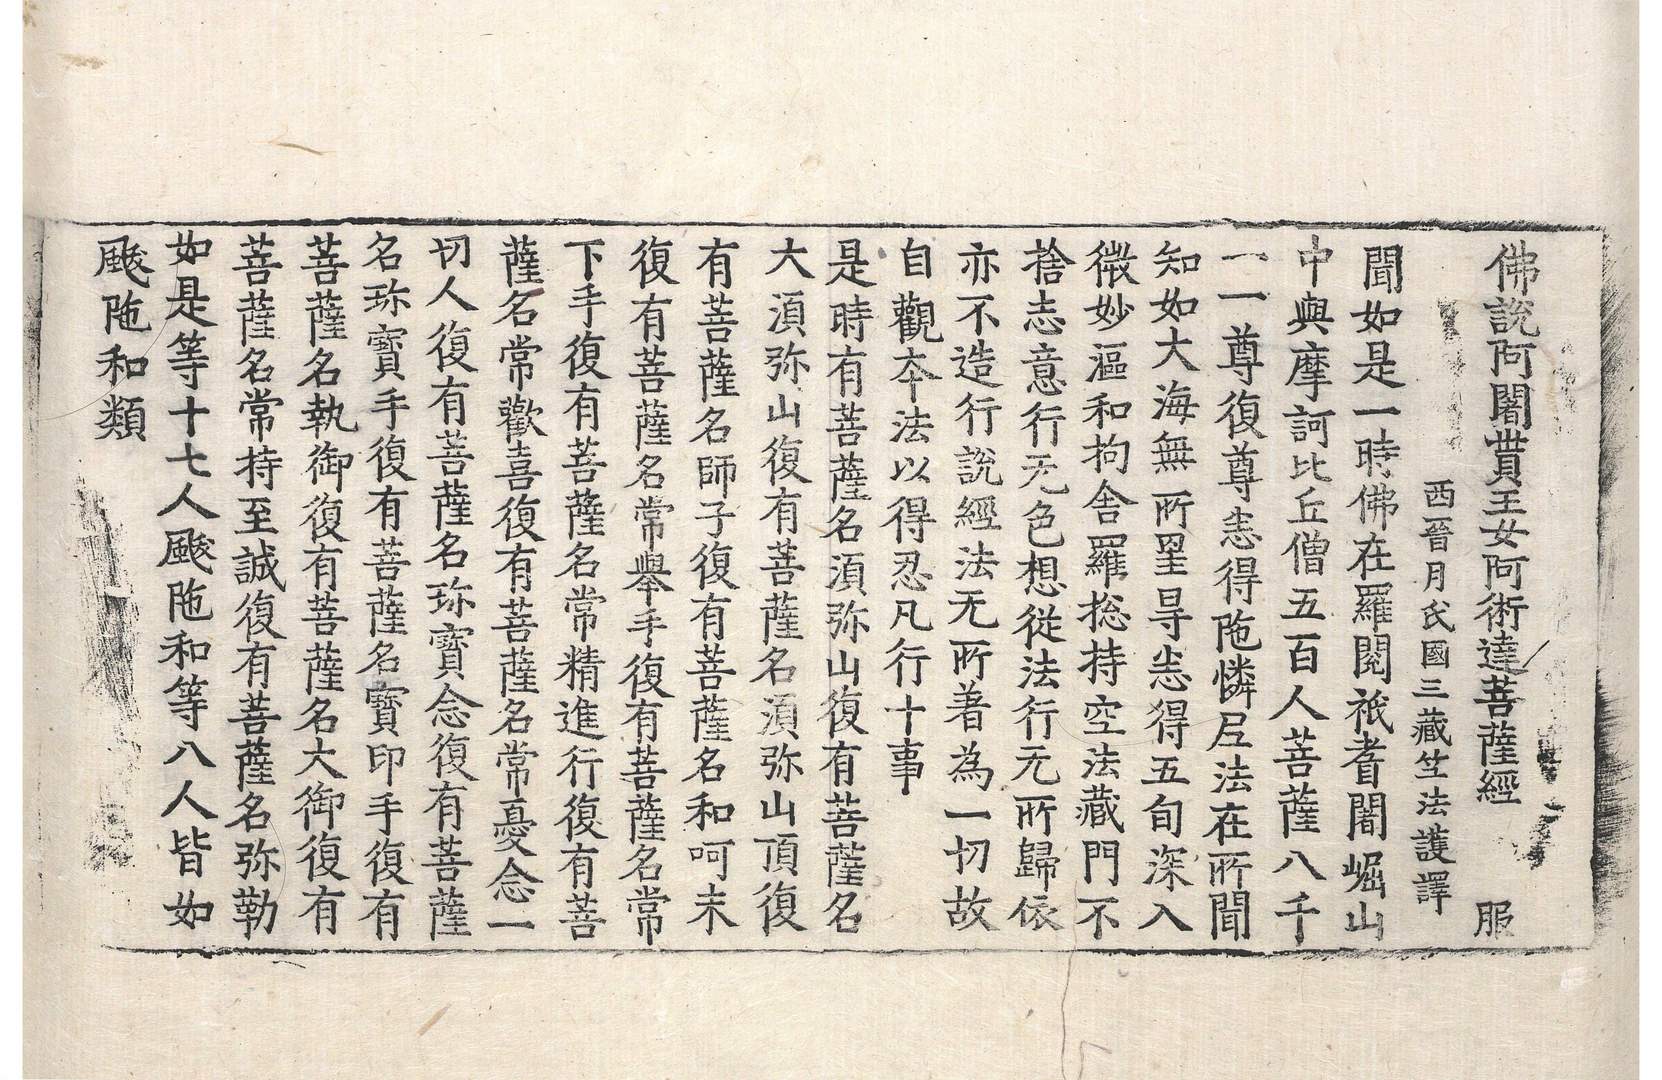 佛說阿闍貰王女阿術達菩薩經 服
西晉月氏國三藏竺法護譯
聞如是一時佛在羅閱祇耆闍崛山
中與摩訶比丘僧五百人菩薩八千
一一尊復尊悉得陁憐尼法在所聞
知如大海無所罣㝵悉得五旬深入
微妙漚和拘舍羅捴持空法藏門不
捨志意行无色想從法行无所歸依
亦不造行說經法无所著為一切故
自觀夲法以得忍凡行十事
是時有菩薩名湏弥山復有菩薩名
大湏弥山復有菩薩名湏弥山頂復
有菩薩名師子復有菩薩名和呵末
復有菩薩名常舉手復有菩薩名常
下手復有菩薩名常精進行復有菩
薩名常歡喜復有菩薩名常憂念一
切人復有菩薩名珎寳念復有菩薩
名珎寳手復有菩薩名寳印手復有
菩薩名執御復有菩薩名大御復有
菩薩名常持至誠復有菩薩名弥勒
如是等十七人颰陁和等八人皆如
颰陁和類